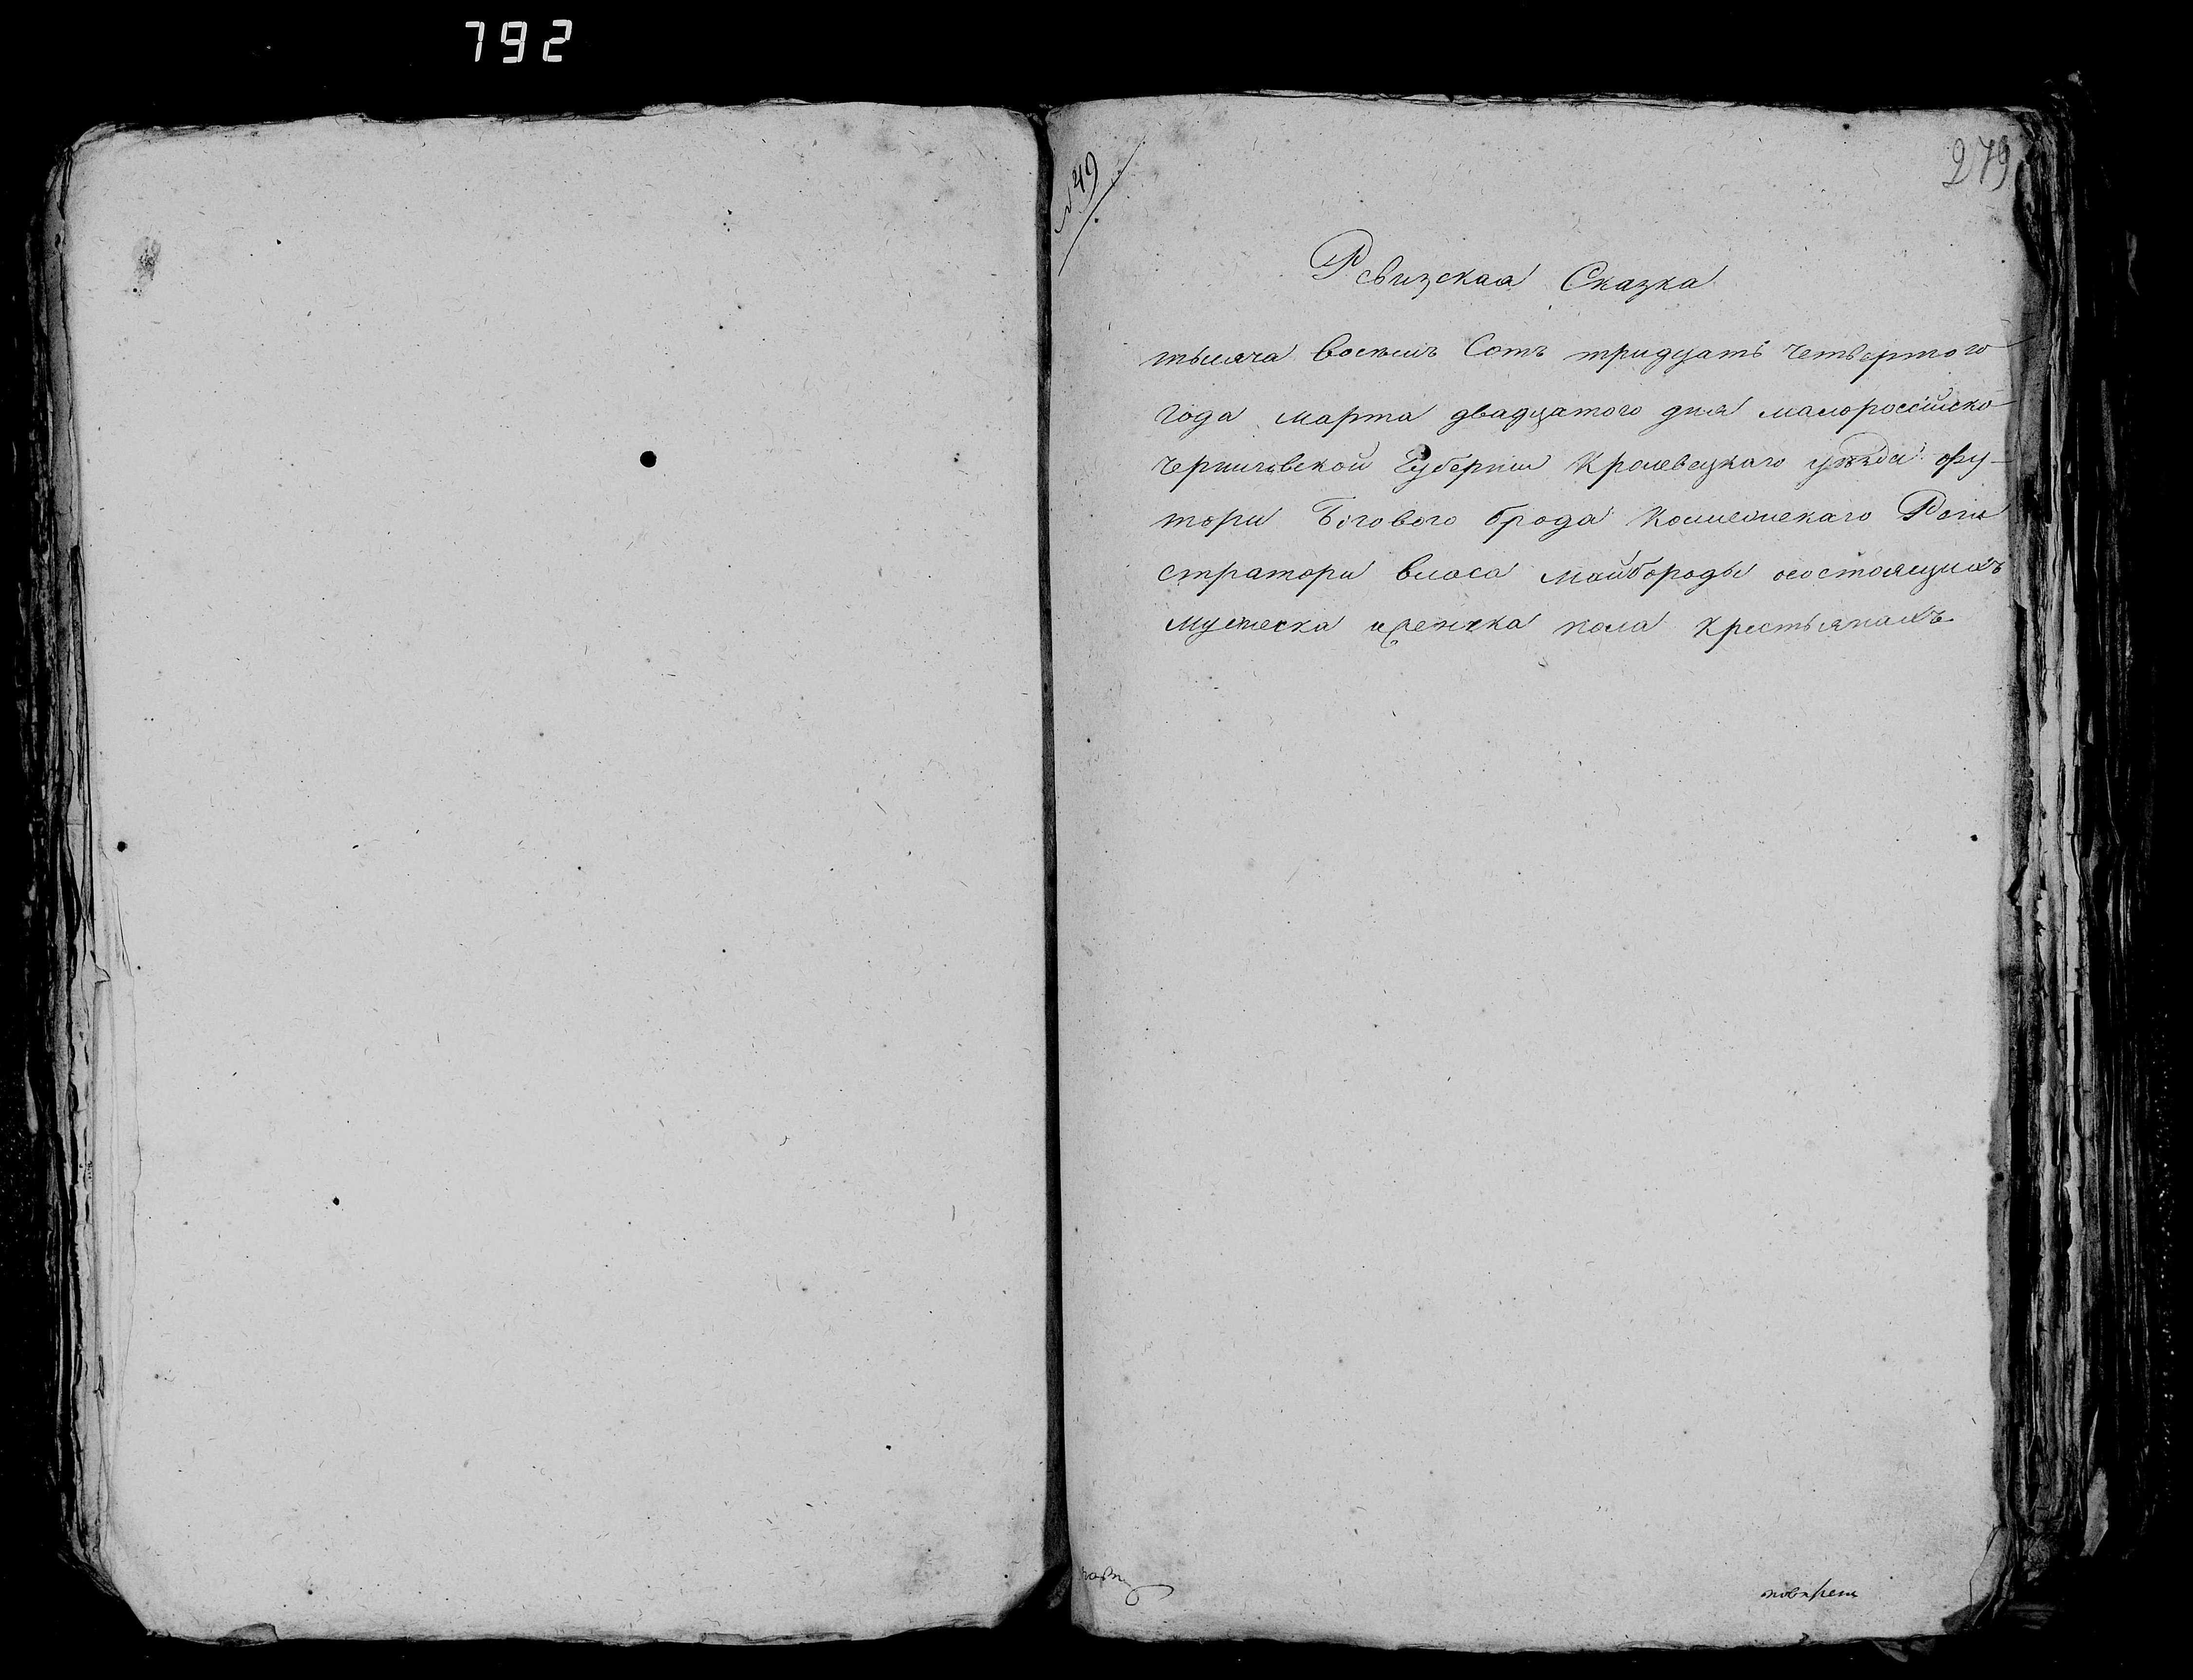 792
№ 49
279
Ревизская Сказка
тысяча восемь Сотъ тридцать четвертого
года марта двадцатого дня малороссійско
черниговской Губернии Кролевецкаго уезда фу-
тори Богового брода Коллежскаго Реги
стратори власа майбороды осостоящихъ
мужеска иженска пола крестьянахъ